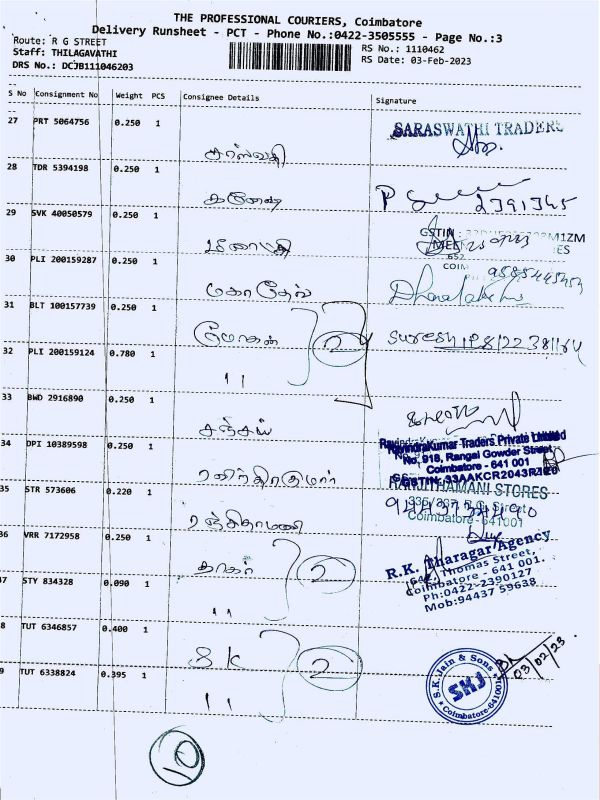 THE PROFESSIONAL COURIERS, Coimbatore
Delivery Runsheet - PCT - Phone No.:0422-3505555 - Page No.:3
Route: R G STREET
Staff: THILAGAVATHI
DRS No.: DCJB111046203
RS No.: 1110462
RS Date: 03-Feb-2023
S No Consignment No Weight PCS Consignee Details Signature
27 PRT 5064756 0.250 1
சரஸ்வதி
SARASWATHI TRADERS
28 TDR 5394198 0.250 1
கணேஷ்
2391345
29 SVK 40050579 0.250 1
GSTIN M1ZM
30 PLI 200159287 0.250 1
மகாதேவ்
9585445454
31 BLT 100157739 0.250 1
2
Suresh
32 PLI 200159124 0.780 1
11
33 BWD 2916890 0.250 1
சஞ்சய்
34 DPI 10389598 0.250 1
ரவிந்திரகுமார்
RavindraKumar Traders Private Limited
No: 918, Rangai Gowder Street
Coimbatore - 641 001
35 STR 573606 0.220 1
ரஞ்சிதாமணி
STORES
Coimbatore-641001
36 VRR 7172958 0.250 1
தாகர்
2
R.K. Tharagar Agency
Thomas Street,
Coimbatore - 641 001.
Ph:0422-2390127
Mob:94437 59638
7 STY 834328 0.090 1
11
8 TUT 6346857 0.400 1
S K
2
9 TUT 6338824 0.395 1
11
S.K.Jain & Sons
SKJ
Coimbatore-641001
03/02/23
10